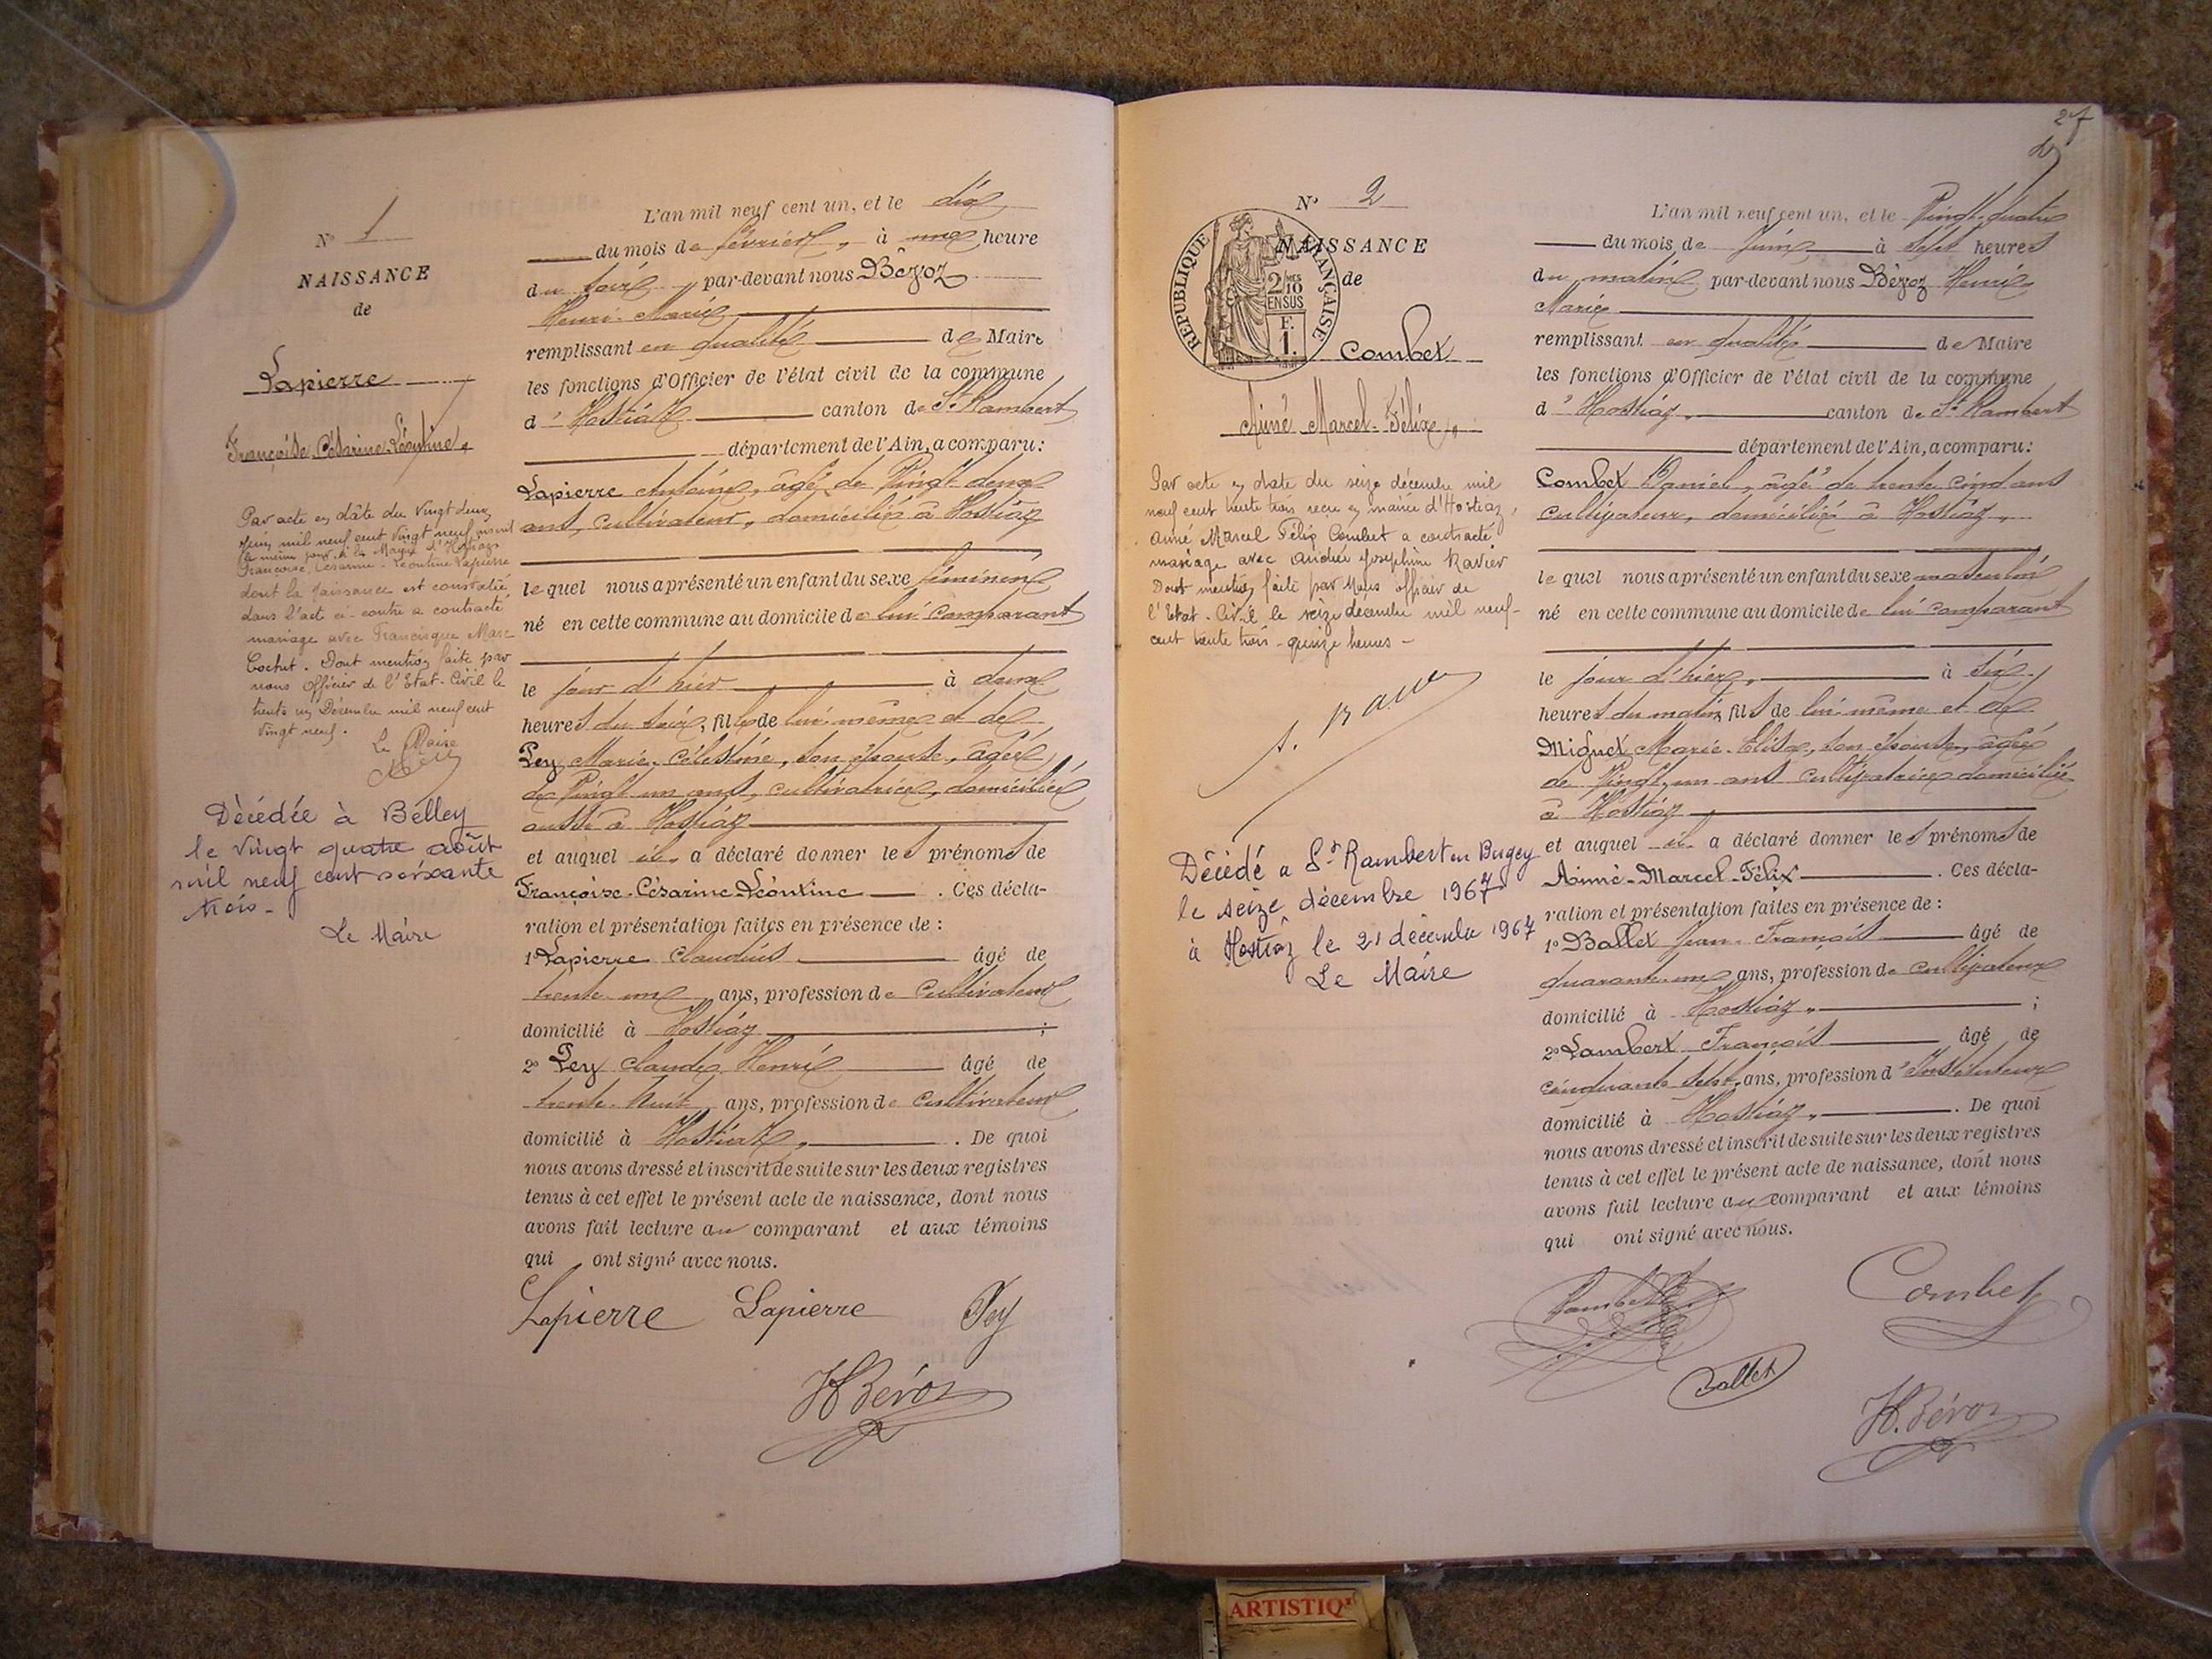 N° 1
NAISSANCE
de
Lapierre
Françoise Césarine Léontine
Par acte en dâte du vingt deux
Juin mil neuf cent vingt neuf, inscrit
le même jour à la Mairie d'Hostiaz
Françoise, Césarine - Léontine Lapierre
dont la naissance est constatée
dans l'acte ci-contre a contracté
mariage avec Francisque Marc
Cochet. Dont mention faite par
nous Officier de l'Etat-Civil le
trente un Décembre mil neuf cent
vingt neuf.
Le Maire
Décédée à Belley
le vingt quatre août
mil neuf cent soixante
trois -
Le Maire
L'an mil neuf cent un, et le dix
du mois de février, à une heure
du soir par-devant nous Bévoz
Henri-Marie
remplissant en qualité de Maire
les fonctions d'Officier de l'état civil de la commune
d'Hostiaz canton de St Rambert
département de l'Ain, a comparu:
Lapierre Antoine, âgé de Vingt deux
ans, cultivateur, domicilié à Hostiaz
le quel nous a présenté un enfant du sexe féminin
né en cette commune au domicile de lui comparant
le jour d'hier à deux
heures du soir, fille de lui même et de
Pey Marie-Célestine, son épouse, âgée
de Vingt un ans, cultivatrice, domiciliée
aussi à Hostiaz
et auquel il a déclaré donner les prénoms de
Françoise-Césarine-Léontine. Ces décla-
ration et présentation faites en présence de :
1° Lapierre Claudius âgé de
trente un ans, profession de Cultivateur
domicilié à Hostiaz ;
2° Pey Claude Henri âgé de
trente-huit ans, profession de cultivateur
domicilié à Hostiaz. De quoi
nous avons dressé et inscrit de suite sur les deux registres
tenus à cet effet le présent acte de naissance, dont nous
avons fait lecture au comparant et aux témoins
qui ont signé avec nous.
Lapierre Lapierre Pey
H Bévoz
27
N° 2
NAISSANCE
de
REPUBLIQUE FRANÇAISE
2 MES
10
EN SUS
F.
1.
Combet
Aimé Marcel-Félix
Par acte en date du seize décembre mil
neuf cent trente trois reçu en mairie d'Hostiaz,
Aimé Marcel Félix Combet a contracté
mariage avec Andrée Joséphine Ravier
Dont mention faite par Nous officier de
l'Etat-Civil le seize décembre mil neuf-
cent trente trois - quinze heures -
Décédé à St Rambert en Bugey
le seize décembre 1967
à Hostiaz le 21 décembre 1967
Le Maire
L'an mil neuf cent un, et le Vingt-quatre
du mois de Juin à sept heures
du matin par-devant nous Bévoz Henri
Marie
remplissant en qualité de Maire
les fonctions d'Officier de l'état civil de la commune
d'Hostiaz, canton de St Rambert
département de l'Ain, a comparu:
Combet Daniel, âgé de trente cinq ans
cultivateur, domicilié à Hostiaz
le quel nous a présenté un enfant du sexe masculin
né en cette commune au domicile de lui comparant
le jour d'hier, à six
heures du matin, fils de lui même et de
Miguet Marie-Élisa, son épouse, âgée
de Vingt-un ans cultivatrice domiciliée
à Hostiaz
et auquel il a déclaré donner les prénoms de
Aimé-Marcel-Félix. Ces décla-
ration et présentation faites en présence de :
1° Ballet Jean-François âgé de
quarante-un ans, profession de cultivateur
domicilié à Hostiaz, ;
2° Lambert François âgé de
cinquante sept ans, profession d'Instituteur
domicilié à Hostiaz,. De quoi
nous avons dressé et inscrit de suite sur les deux registres
tenus à cet effet le présent acte de naissance, dont nous
avons fait lecture au comparant et aux témoins
qui ont signé avec nous.
Lambert Combet
Ballet
H. Bévoz
ARTISTIQ